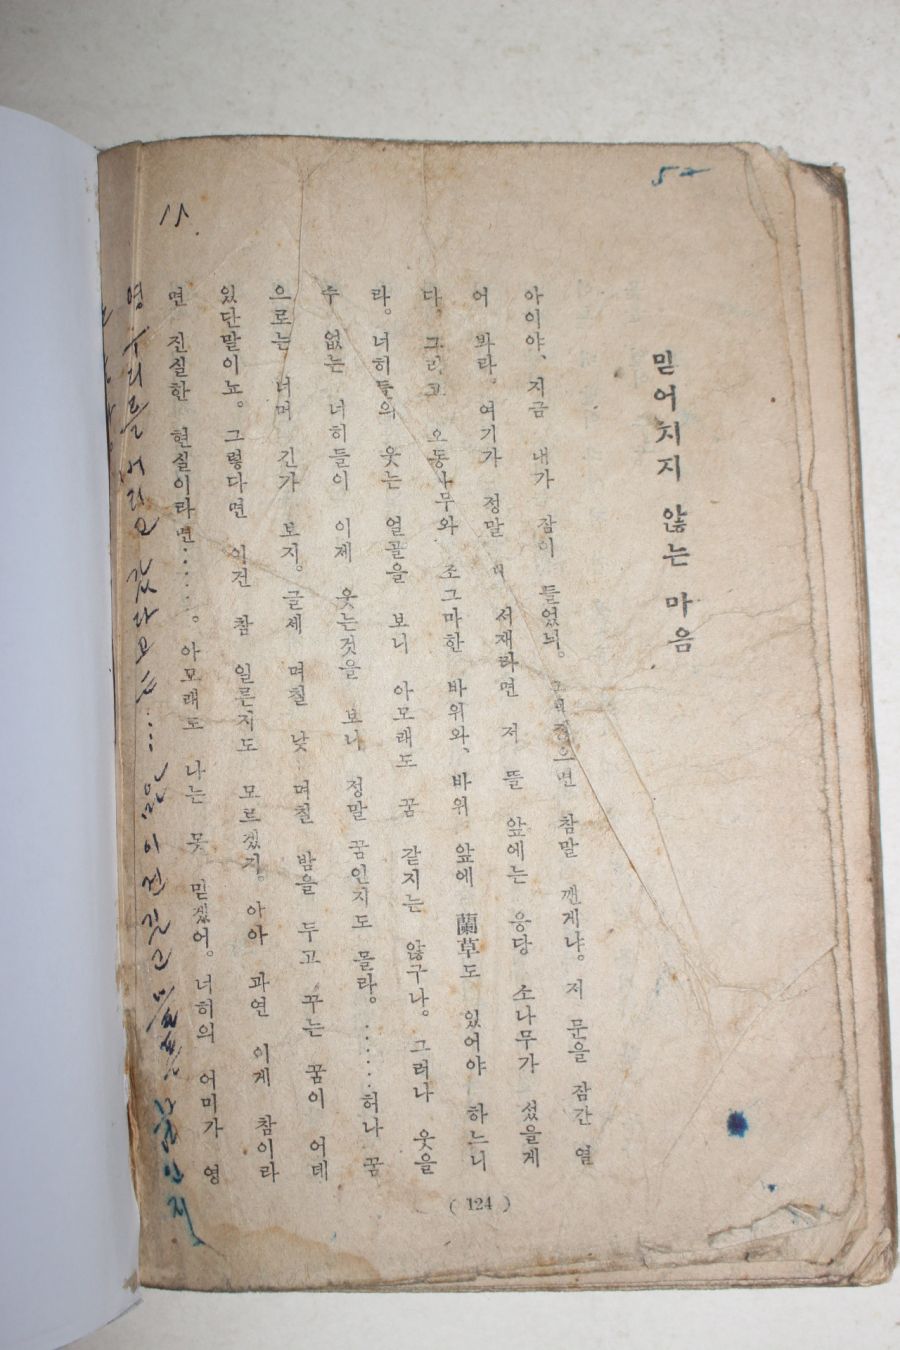 믿어지지 않는 마음
아이야、지금 내가 잠이 들었늬。 참말 깬게냐。저 문을 잠간 열
어 봐라。여기가 정말 내 서재라면 저 뜰 앞에는 응당 소나무가 섰을게
다。그리고 오동나무와 조그마한 바위와、바위 앞에 蘭草도 있어야 하느니
라。너히들의 웃는 얼골을 보니 아모래도 꿈 같지는 않구나。그러나 웃을
수 없는 너히들이 이제 웃는것을 보니 정말 꿈인지도 몰라。……허나 꿈
으로는 너머 긴가 보지。글세 며칠 낮 며칠 밤을 두고 꾸는 꿈이 어데
있단말이뇨。그렇다면 이건 참 일른지도 모르겠기。아아 과연 이게 참이라
면 진실한 현실이라면……。아모래도 나는 못 믿겠어。너히의 어미가 영
영 우리를 버리고 갔다고는…… 이건 꿈인지
(124)